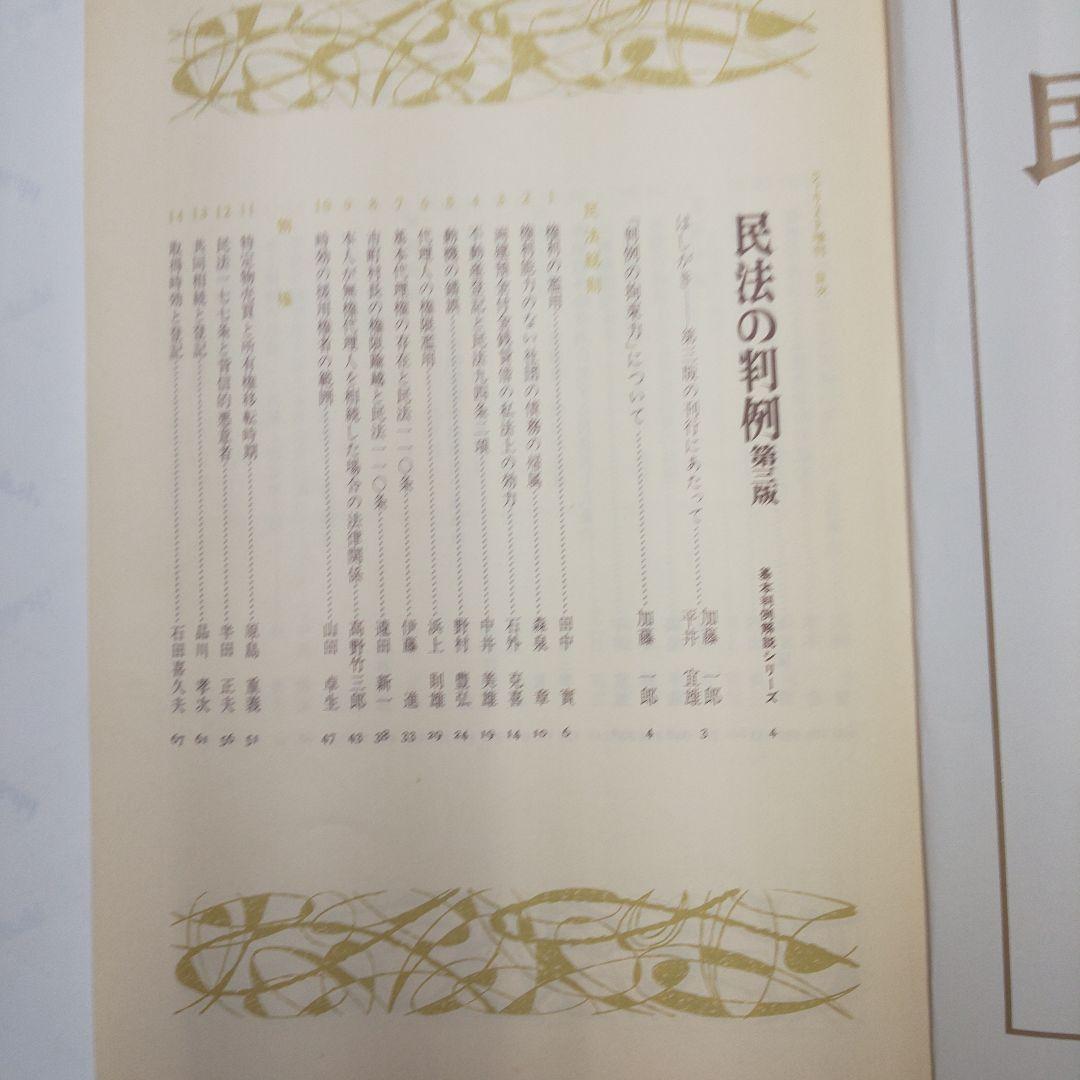 ジュリスト増刊・目次
民法の判例 第三版 基本判例解説シリーズ 4
はしがき――第三版の刊行にあたって 加藤 一郎 平井 宜雄 3
『判例の拘束力』について 加藤 一郎 4
民法総則
1 権利の濫用 田中 實 6
2 権利能力のない社団の債務の帰属 森泉 章 10
3 両建預金付金銭貸借の私法上の効力 石外 克喜 14
4 不動産登記と民法九四条二項 中井 美雄 19
5 動機の錯誤 野村 豊弘 24
6 代理人の権限濫用 浜上 則雄 29
7 基本代理権の存在と民法一一〇条 伊藤 進 33
8 市町村長の権限踰越と民法一一〇条 遠田 新一 38
9 本人が無権代理人を相続した場合の法律関係 高野竹三郎 43
10 時効の援用権者の範囲 山田 卓生 47
物 権
11 特定物売買と所有権移転時期 原島 重義 51
12 民法一七七条と背信的悪意者 半田 正夫 56
13 共同相続と登記 品川 孝次 61
14 取得時効と登記 石田喜久夫 67
民